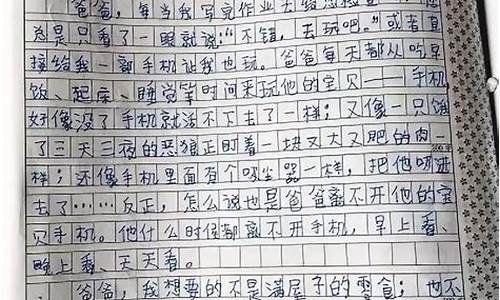 爸爸,每当我写完作业去给您检查
总是只看了一眼就说:“不错,去玩吧。”或者直
接给我一部手机让我也玩。爸爸每天都从吃早
饭、起床、睡觉等时间来玩他的宝贝——手机
好像没了手机就活不下去了一样;又像一只饿
了三天三夜的恶狼正盯着一块又大又肥的肉一
样;还像手机里面有个吸尘器一样,把他吸进
去了……反正,怎么说也是爸爸离不开他的宝
贝手机。他什么时候都离不开手机,早上看、
晚上看、天天看。
爸爸,我想要的不是满屋子的零食;也不